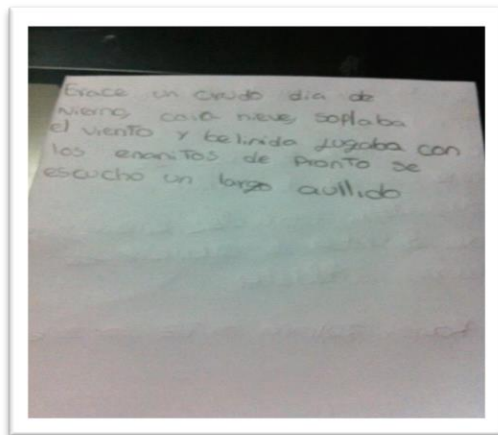 Erace un crudo dia de
vierno, caia nieve, soplaba
el viento y belinda jugaba con
los enanitos de pronto se
escuchó un largo aullido